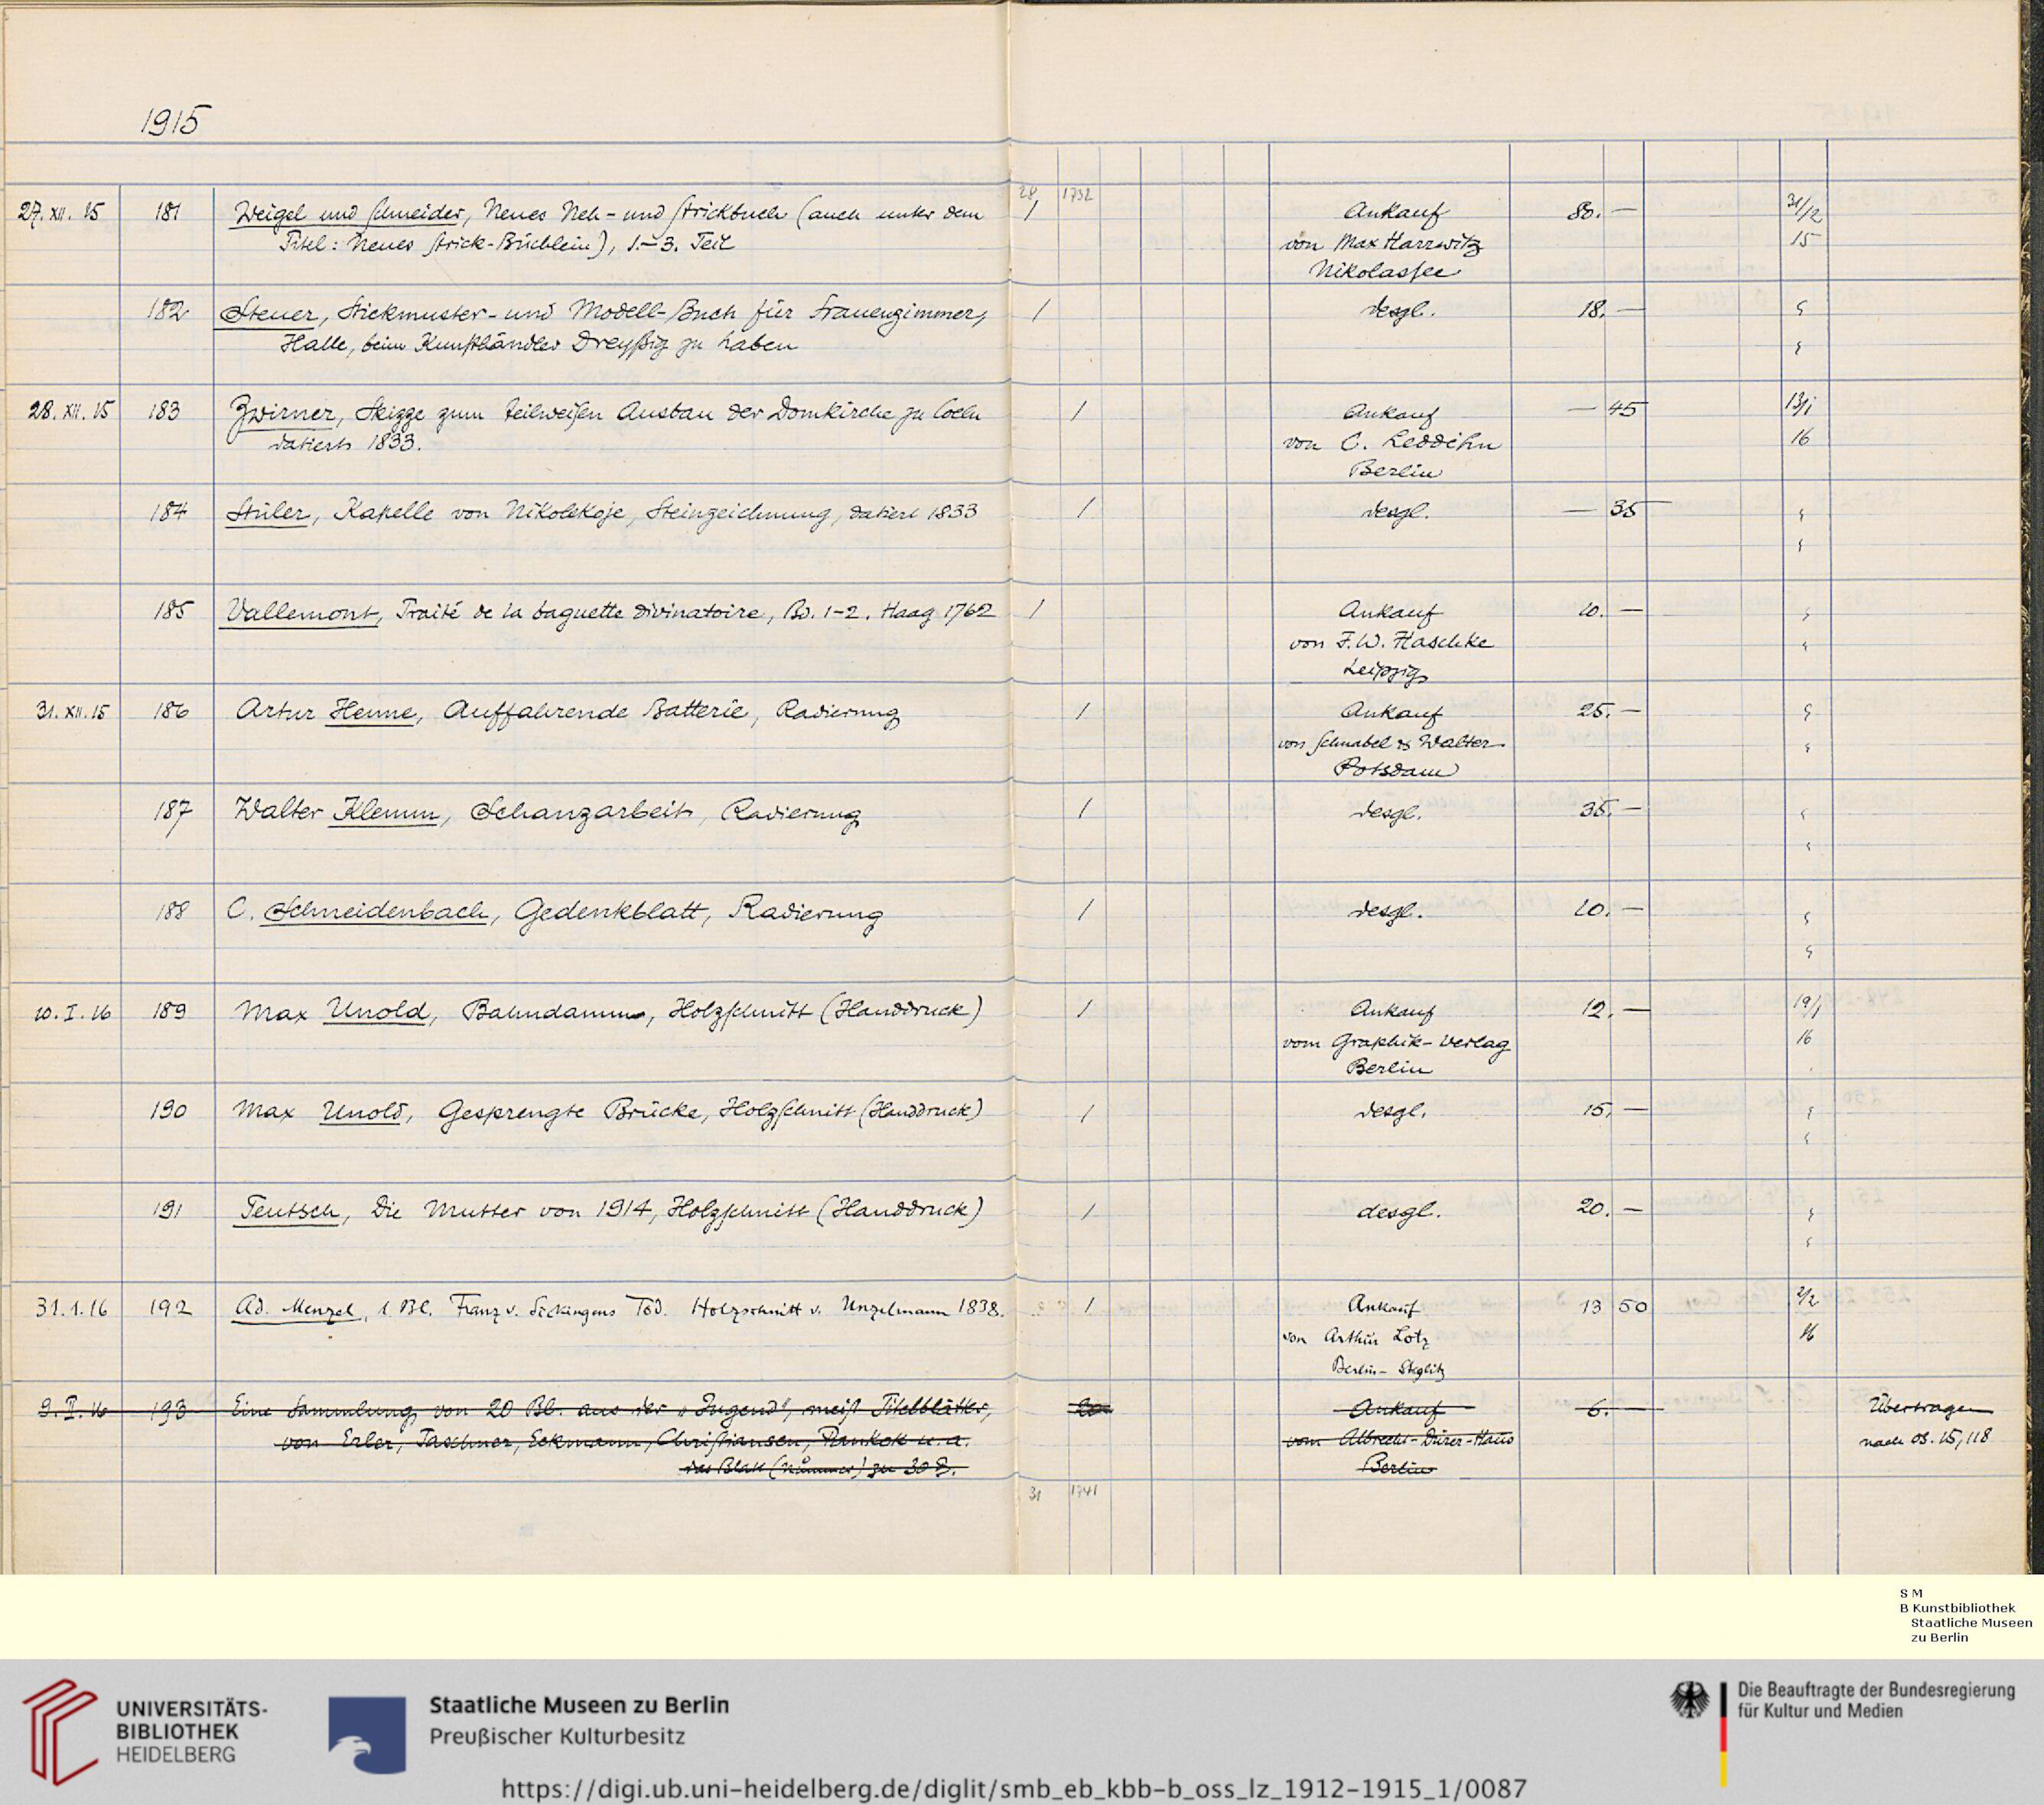 1915
28 1732
27. XII. 15 181 Weigel und Schneider, Neues Neh- und Strickbuch (auch unter dem / Ankauf 80.— 31/12
Titel: Neues Strick-Büchlein), 1.–3. Teil von Max Harrwitz 15
Nikolassee
182 Steuer, Stickmuster- und Modell-Buch für Frauenzimmer, / desgl. 18.— "
Halle, beim Kunsthändler Dreyßig zu haben "
28. XII. 15 183 Zwirner, Skizze zum teilweisen Ausbau der Domkirche zu Coeln / Ankauf — 45 13/1
datiert 1833. von C. Leddihn 16
Berlin
184 Stüler, Kapelle von Nikolskoje, Steinzeichnung, datiert 1833 / desgl. — 35 "
"
185 Vallemont, Traité de la baguette divinatoire, Bd. 1-2. Haag 1762 / Ankauf 10.— "
von F. W. Haschke "
Leipzig
31. XII. 15 186 Artur Henne, Auffahrende Batterie, Radierung / Ankauf 25.— "
von Schnabel & Walter "
Potsdam
187 Walter Klemm, Schanzarbeit, Radierung / desgl. 35.— "
"
188 C. Schneidenbach, Gedenkblatt, Radierung / desgl. 10.— "
"
10. I. 16 189 Max Unold, Bahndamm, Holzschnitt (Handdruck) / Ankauf 12.— 19/1
vom Graphik-Verlag 16
Berlin
190 Max Unold, Gesprengte Brücke, Holzschnitt (Handdruck) / desgl. 15.— "
"
191 Teutsch, Die Mutter von 1914, Holzschnitt (Handdruck) / desgl. 20.— "
"
31.1.16 192 Ad. Menzel, 1 Bl. Franz v. Sickingens Tod. Holzschnitt v. Unzelmann 1838. / Ankauf 13 50 2/2
von Arthur Lotz 16
Berlin-Steglitz
9. II. 16 193 Eine Sammlung von 20 Bl. aus der „Jugend", meist Titelblätter, 20 Ankauf 6.— Übertragen
von Erler, Taschner, Eckmann, Christiansen, Pankok u. a. vom Albrecht-Dürer-Haus nach OS. 15,118
das Blatt (Nummer) zu 30 ₰. Berlin
31 1741
S M
B Kunstbibliothek
Staatliche Museen
zu Berlin
UNIVERSITÄTS-
BIBLIOTHEK
HEIDELBERG
Staatliche Museen zu Berlin
Preußischer Kulturbesitz
Die Beauftragte der Bundesregierung
für Kultur und Medien
https://digi.ub.uni-heidelberg.de/diglit/smb_eb_kbb-b_oss_lz_1912-1915_1/0087